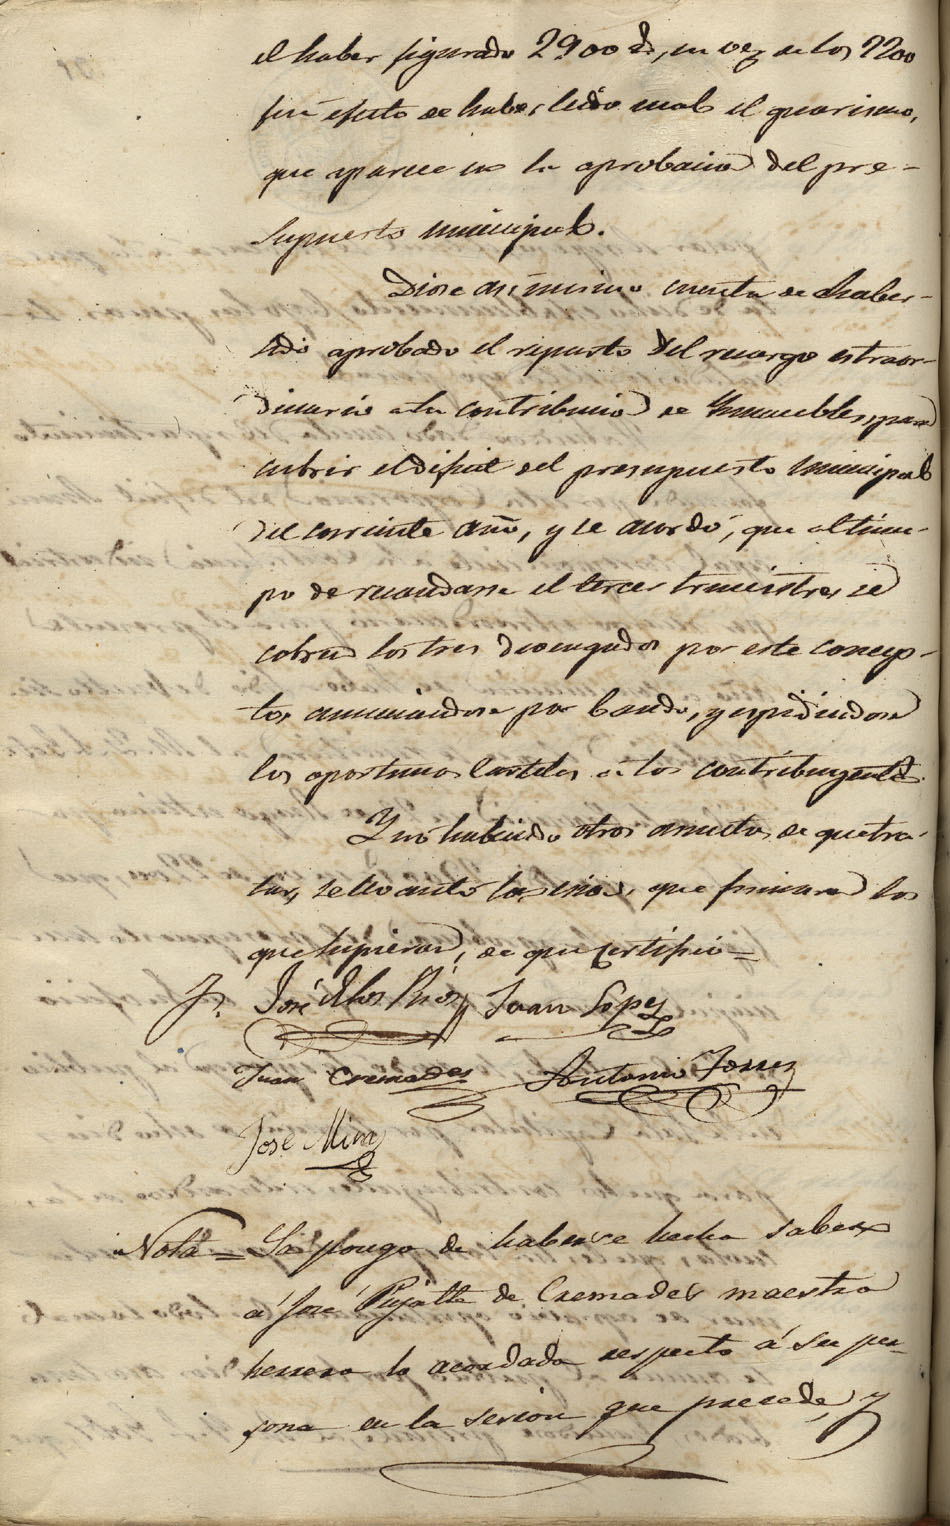 el haber figurado 2900 rs, en vez de los 2200
fué efecto de haber leido mal el guarismo,
que aparece en la aprobacion del pre-
supuesto municipal.
Diose asimismo cuenta de haber-
sido aprobado el reparto del recargo estraor-
dinario a la contribucion de Inmuebles, para
cubrir el deficit del presupuesto municipal
del corriente año, y se acordó, que al tiem-
po de recaudarse el tercer trimestre, se
cobren los tres devengados por este concep-
to, anunciandose por bando, y espidiendose
los oportunos carteles a los contribuyentes.
Y no habiendo otros asuntos de que tra-
tar, se levantó la sesion, que firmaron los
que supieron, de que certifico=
José de los Rios Juan Lopez
Juan Cremades Antonio Torres
José Mira
Nota= La pongo de haberse hecho saber
á José Pujalte de Cremades maestro
herrero lo acordado respecto á su per-
sona en la sesion que precede, y